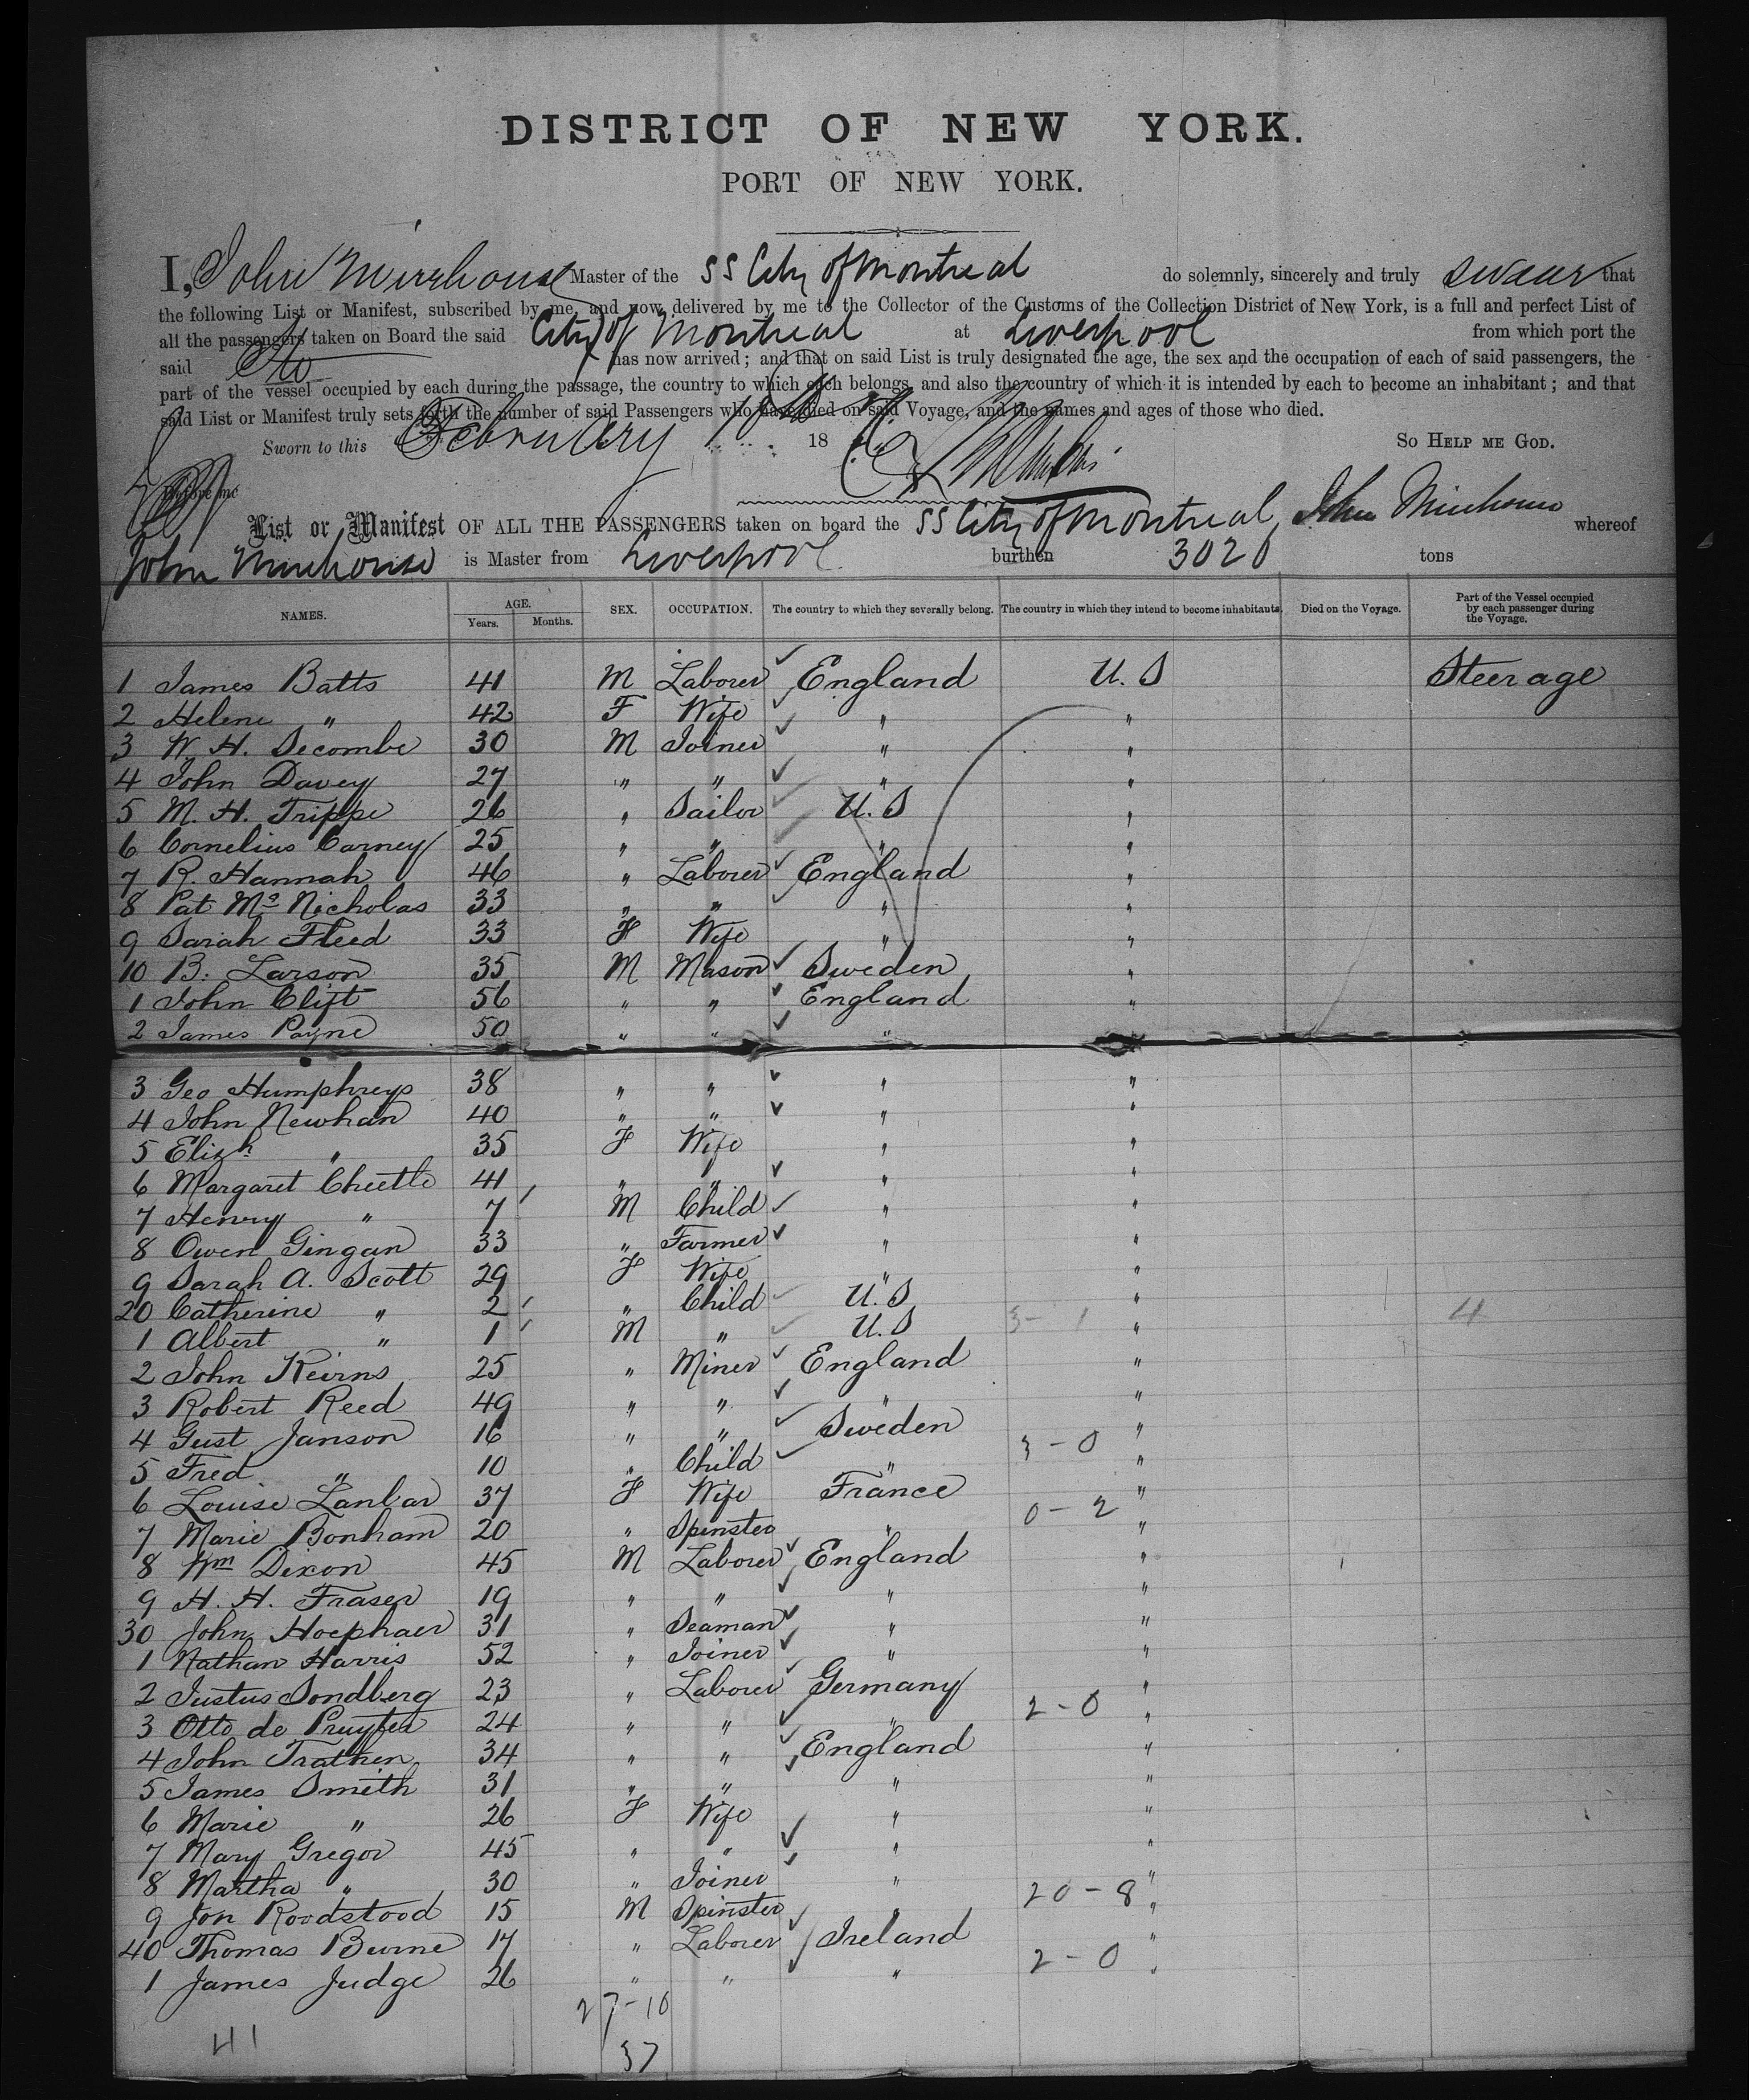 DISTRICT OF NEW YORK.
PORT OF NEW YORK.
I, John Mirehouse Master of the SS City of Montreal do solemnly, sincerely and truly swear that
the following List or Manifest, subscribed by me, and now delivered by me to the Collector of the Customs of the Collection District of New York, is a full and perfect List of
all the passengers taken on Board the said City of Montreal at Liverpool from which port the
said has now arrived; and that on said List is truly designated the age, the sex and the occupation of each of said passengers, the
part of the vessel occupied by each during the passage, the country to which each belongs, and also the country of which it is intended by each to become an inhabitant; and that
said List or Manifest truly sets forth the number of said Passengers who have died on said Voyage, and the names and ages of those who died.
Sworn to this February 18 So Help me God.
Before me
List or Manifest OF ALL THE PASSENGERS taken on board the SS City of Montreal, John Mirehouse whereof
John Mirehouse is Master from Liverpool burthen 3020 tons
NAMES. AGE. Years. Months. SEX. OCCUPATION. The country to which they severally belong. The country in which they intend to become inhabitants. Died on the Voyage. Part of the Vessel occupied by each passenger during the Voyage.
1 James Batts 41 M Laborer England U.S Steerage
2 Helene " 42 F Wife " "
3 W. H. Secombe 30 M Joiner " "
4 John Davey 27 " " " "
5 M. H. Trippe 26 " Sailor U.S "
6 Cornelius Carney 25 " " " "
7 R. Hannah 46 " Laborer England "
8 Pat Mc Nicholas 33 " " " "
9 Sarah Fleed 33 F Wife " "
10 B. Larson 35 M Mason Sweden "
1 John Clift 56 " " England "
2 James Payne 50 " " "
3 Geo Humphreys 38 " " " "
4 John Newhan 40 " " " "
5 Elizh " 35 F Wife " "
6 Margaret Cheetle 41 " " " "
7 Henry " 7 M Child " "
8 Owen Gingan 33 " Farmer " "
9 Sarah A. Scott 29 F Wife " "
20 Catherine " 2 " Child U.S "
1 Albert " 1 M " U.S 3-1 " 4
2 John Keirns 25 " Miner England "
3 Robert Reed 49 " " " "
4 Gust Janson 16 " " Sweden "
5 Fred " 10 " Child " 3-0 "
6 Louise Lanbar 37 F Wife France "
7 Marie Bonham 20 " Spinster " 0-2 "
8 Wm Dixon 45 M Laborer England "
9 H. H. Fraser 19 " " " "
30 John Hoephaer 31 " Seaman " "
1 Nathan Harris 52 " Joiner " "
2 Justus Sondberg 23 " Laborer Germany "
3 Otto de Pruyter 24 " " " 2-0 "
4 John Trathen 34 " " England "
5 James Smith 31 " " " "
6 Marie " 26 F Wife " "
7 Mary Gregor 45 " " " "
8 Martha " 30 " Joiner " "
9 Jon Roodstood 15 M Spinster " 20-8 "
40 Thomas Burne 17 " Laborer Ireland "
1 James Judge 26 " " " 2-0 "
27-10
41 37